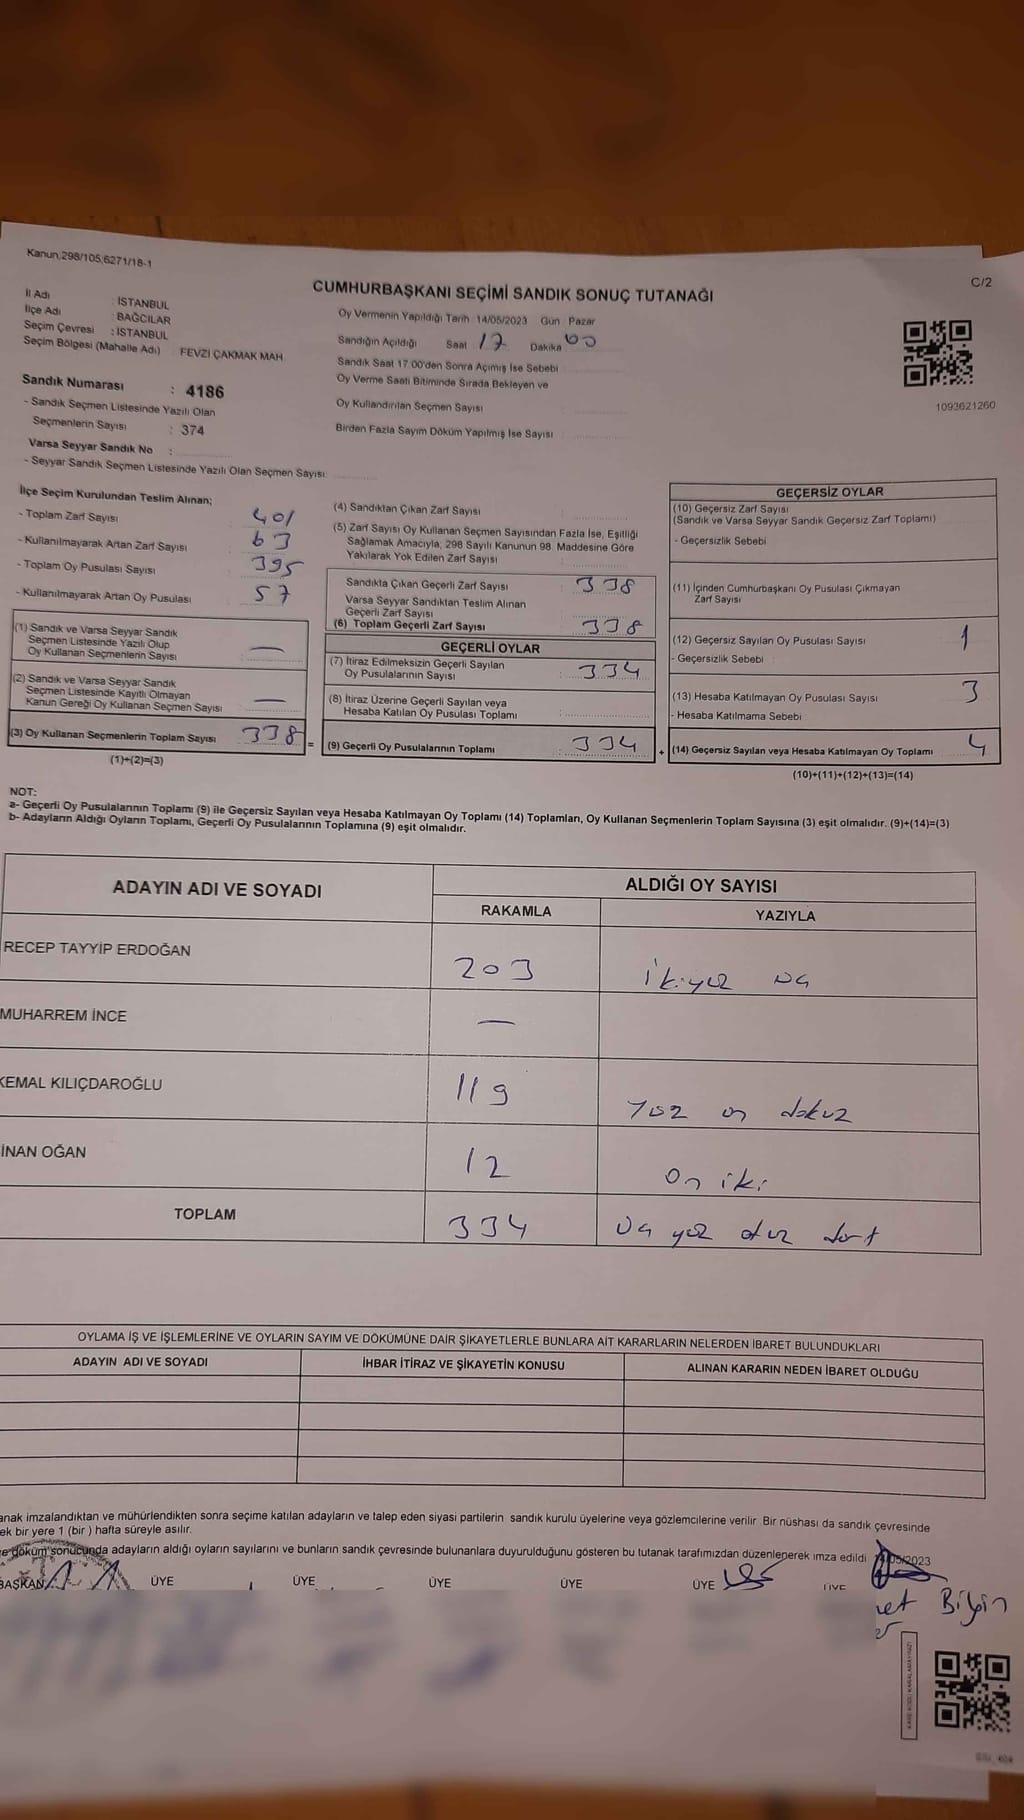 Kanun,298/105,6271/18-1
C/2
CUMHURBAŞKANI SEÇİMİ SANDIK SONUÇ TUTANAĞI
İl Adı : İSTANBUL
İlçe Adı : BAĞCILAR
Seçim Çevresi : İSTANBUL
Seçim Bölgesi (Mahalle Adı) : FEVZİ ÇAKMAK MAH
Sandık Numarası : 4186
- Sandık Seçmen Listesinde Yazılı Olan
Seçmenlerin Sayısı : 374
Varsa Seyyar Sandık No :
- Seyyar Sandık Seçmen Listesinde Yazılı Olan Seçmen Sayısı:
Oy Vermenin Yapıldığı Tarih 14/05/2023 Gün Pazar
Sandığın Açıldığı Saat 17 Dakika 00
Sandık Saat 17.00'den Sonra Açımış İse Sebebi
Oy Verme Saati Bitiminde Sırada Bekleyen ve
Oy Kullandırılan Seçmen Sayısı
Birden Fazla Sayım Döküm Yapılmış İse Sayısı
1093621260
İlçe Seçim Kurulundan Teslim Alınan;
- Toplam Zarf Sayısı 401
- Kullanılmayarak Artan Zarf Sayısı 63
- Toplam Oy Pusulası Sayısı 395
- Kullanılmayarak Artan Oy Pusulası 57
(1) Sandık ve Varsa Seyyar Sandık
Seçmen Listesinde Yazılı Olup
Oy Kullanan Seçmenlerin Sayısı —
(2) Sandık ve Varsa Seyyar Sandık
Seçmen Listesinde Kayıtlı Olmayan
Kanun Gereği Oy Kullanan Seçmen Sayısı —
(3) Oy Kullanan Seçmenlerin Toplam Sayısı 338 =
(1)+(2)=(3)
(4) Sandıktan Çıkan Zarf Sayısı
(5) Zarf Sayısı Oy Kullanan Seçmen Sayısından Fazla İse, Eşitliği
Sağlamak Amacıyla, 298 Sayılı Kanunun 98. Maddesine Göre
Yakılarak Yok Edilen Zarf Sayısı
Sandıkta Çıkan Geçerli Zarf Sayısı 338
Varsa Seyyar Sandıktan Teslim Alınan
Geçerli Zarf Sayısı
(6) Toplam Geçerli Zarf Sayısı 338
GEÇERLİ OYLAR
(7) İtiraz Edilmeksizin Geçerli Sayılan
Oy Pusulalarının Sayısı : 334
(8) İtiraz Üzerine Geçerli Sayılan veya
Hesaba Katılan Oy Pusulası Toplamı :
(9) Geçerli Oy Pusulalarının Toplamı : 334 +
GEÇERSİZ OYLAR
(10) Geçersiz Zarf Sayısı
(Sandık ve Varsa Seyyar Sandık Geçersiz Zarf Toplamı)
- Geçersizlik Sebebi
(11) İçinden Cumhurbaşkanı Oy Pusulası Çıkmayan
Zarf Sayısı
(12) Geçersiz Sayılan Oy Pusulası Sayısı 1
- Geçersizlik Sebebi :
(13) Hesaba Katılmayan Oy Pusulası Sayısı 3
- Hesaba Katılmama Sebebi
(14) Geçersiz Sayılan veya Hesaba Katılmayan Oy Toplamı 4
(10)+(11)+(12)+(13)=(14)
NOT:
a- Geçerli Oy Pusulalarının Toplamı (9) ile Geçersiz Sayılan veya Hesaba Katılmayan Oy Toplamı (14) Toplamları, Oy Kullanan Seçmenlerin Toplam Sayısına (3) eşit olmalıdır. (9)+(14)=(3)
b- Adayların Aldığı Oyların Toplamı, Geçerli Oy Pusulalarının Toplamına (9) eşit olmalıdır.
ADAYIN ADI VE SOYADI ALDIĞI OY SAYISI
RAKAMLA YAZIYLA
RECEP TAYYİP ERDOĞAN 203 ikiyüz üç
MUHARREM İNCE —
KEMAL KILIÇDAROĞLU 119 yüz on dokuz
İNAN OĞAN 12 On iki
TOPLAM 334 üç yüz otuz dört
OYLAMA İŞ VE İŞLEMLERİNE VE OYLARIN SAYIM VE DÖKÜMÜNE DAİR ŞİKAYETLERLE BUNLARA AİT KARARLARIN NELERDEN İBARET BULUNDUKLARI
ADAYIN ADI VE SOYADI İHBAR İTİRAZ VE ŞİKAYETİN KONUSU ALINAN KARARIN NEDEN İBARET OLDUĞU
anak imzalandıktan ve mühürlendikten sonra seçime katılan adayların ve talep eden siyasi partilerin sandık kurulu üyelerine veya gözlemcilerine verilir Bir nüshası da sandık çevresinde
ek bir yere 1 (bir ) hafta süreyle asılır.
e döküm sonucunda adayların aldığı oyların sayılarını ve bunların sandık çevresinde bulunanlara duyurulduğunu gösteren bu tutanak tarafımızdan düzenlenerek imza edildi 14/05/2023
BAŞKAN ÜYE ÜYE ÜYE ÜYE ÜYE ÜYE
et Bilgin